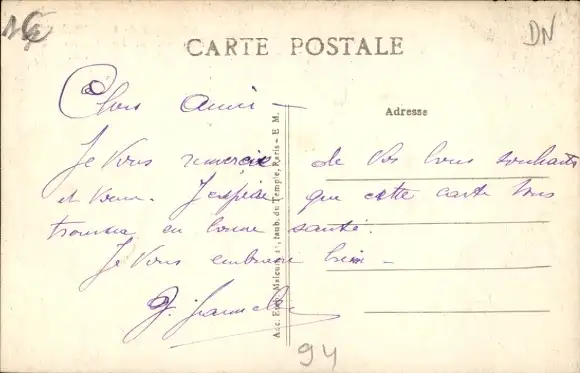 1€
DN
CARTE POSTALE
Chers amis —
Adresse
Je vous remercie de vos bons souhaits
et vœux. J'espère que cette carte vous
trouvera en bonne santé.
Je vous embrasse bien —
Anc. Etab. Malcuit, faub. du Temple, Paris - E M.
94